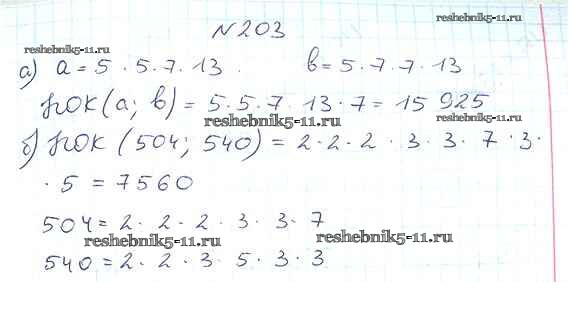 №203
reshebnik5-11.ru reshebnik5-11.ru
а) a = 5 · 5 · 7 · 13. b = 5 · 7 · 7 · 13
НОК(a; b) = 5 · 5 · 7 · 13 · 7 = 15 925
reshebnik5-11.ru reshebnik5-11.ru
б) НОК (504; 540) = 2 · 2 · 2 · 3 · 3 · 7 · 3 ·
· 5 = 7560
504 = 2 · 2 · 2 · 3 · 3 · 7
reshebnik5-11.ru reshebnik5-11.ru
540 = 2 · 2 · 3 · 5 · 3 · 3